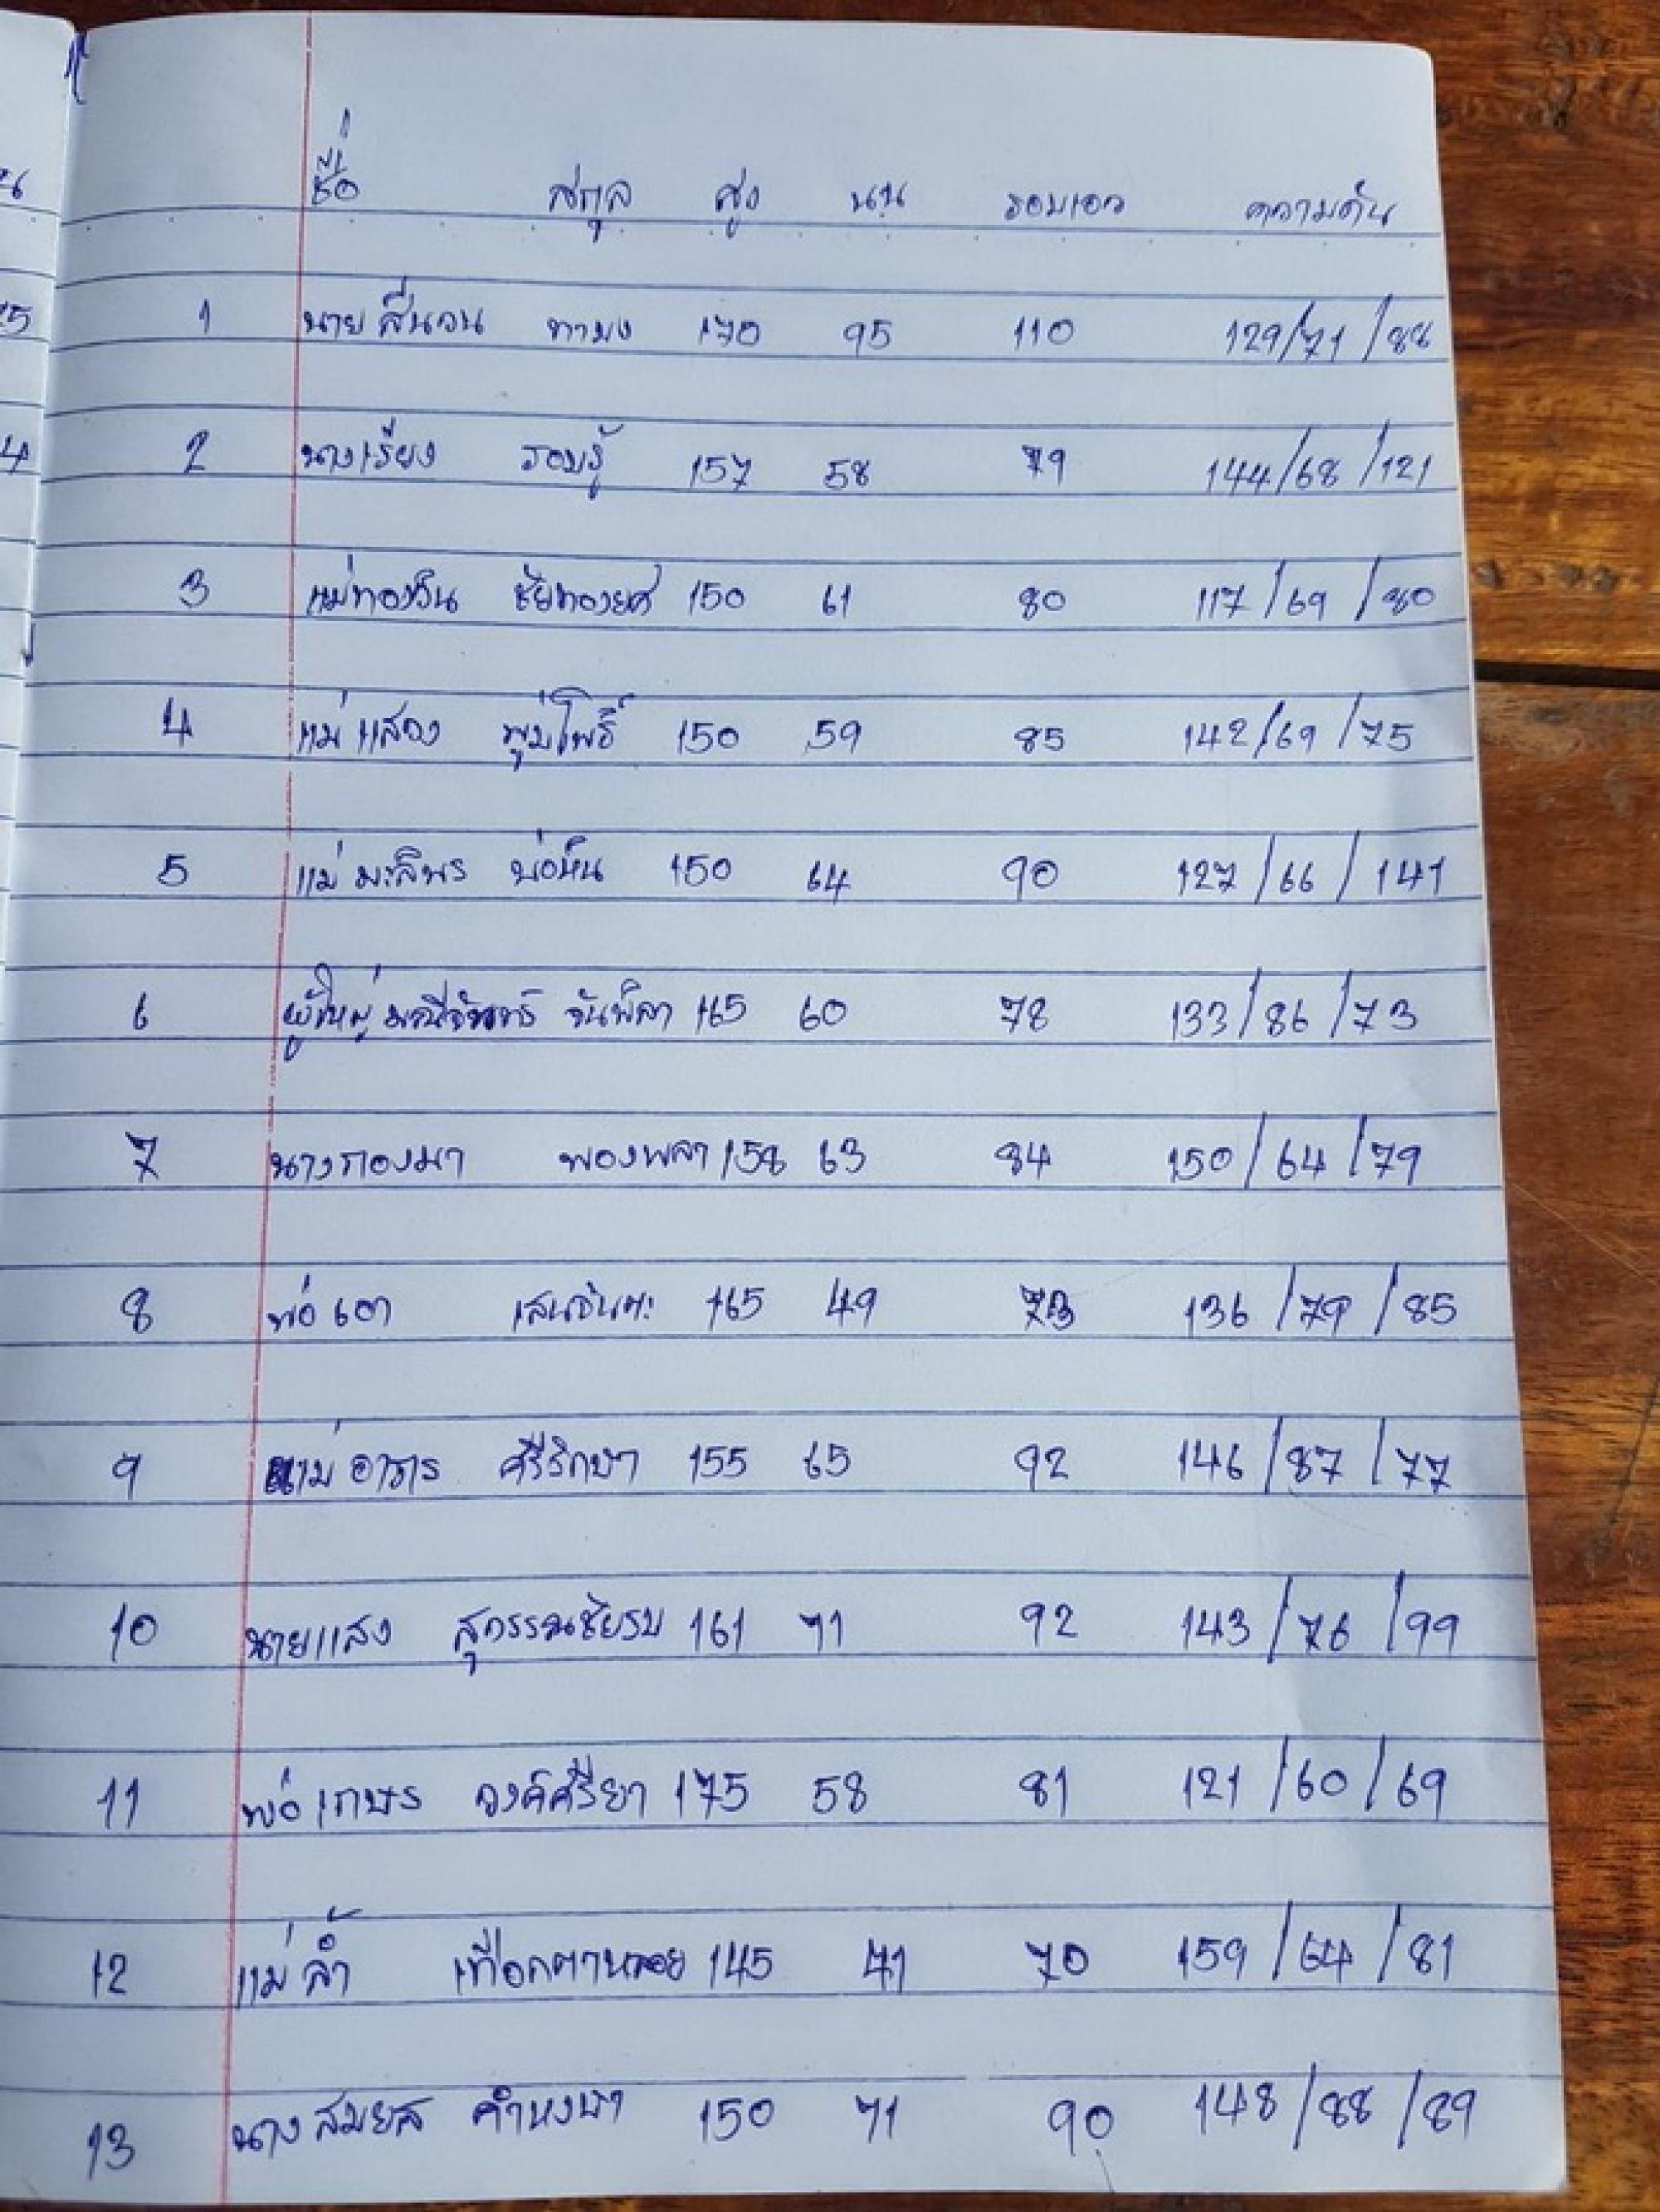 ชื่อ สกุล สูง นน รอบเอว ความดัน
1 นาย สีนวน ทามง 170 95 110 129/71/88
2 นางเรียง รอบรู้ 157 58 79 144/68/121
3 แม่ทองวัน ชัยทองยศ 150 61 80 117/69/80
4 แม่ แสดง พุ่มโพธิ์ 150 59 85 142/69/75
5 แม่ มะลิพร บ่อหิน 150 64 90 127/66/141
6 ผู้ใหญ่ มณีจันทร์ จันพิลา 165 60 78 133/86/73
7 นางกองมา พองพลา 158 63 84 150/64/79
8 พ่อ เสนจันทะ 165 49 73 136/79/85
9 แม่ อาภร ศรีรักษา 155 65 92 146/87/77
10 นายแสง สุวรรณชัยรบ 161 71 92 143/76/99
11 พ่อ เกษร วงค์ศรียา 175 58 81 121/60/69
12 แม่ ล้ำ เทือกตาหลอย 145 41 70 159/64/81
13 นาง สมยศ คำหงษา 150 71 90 148/88/89